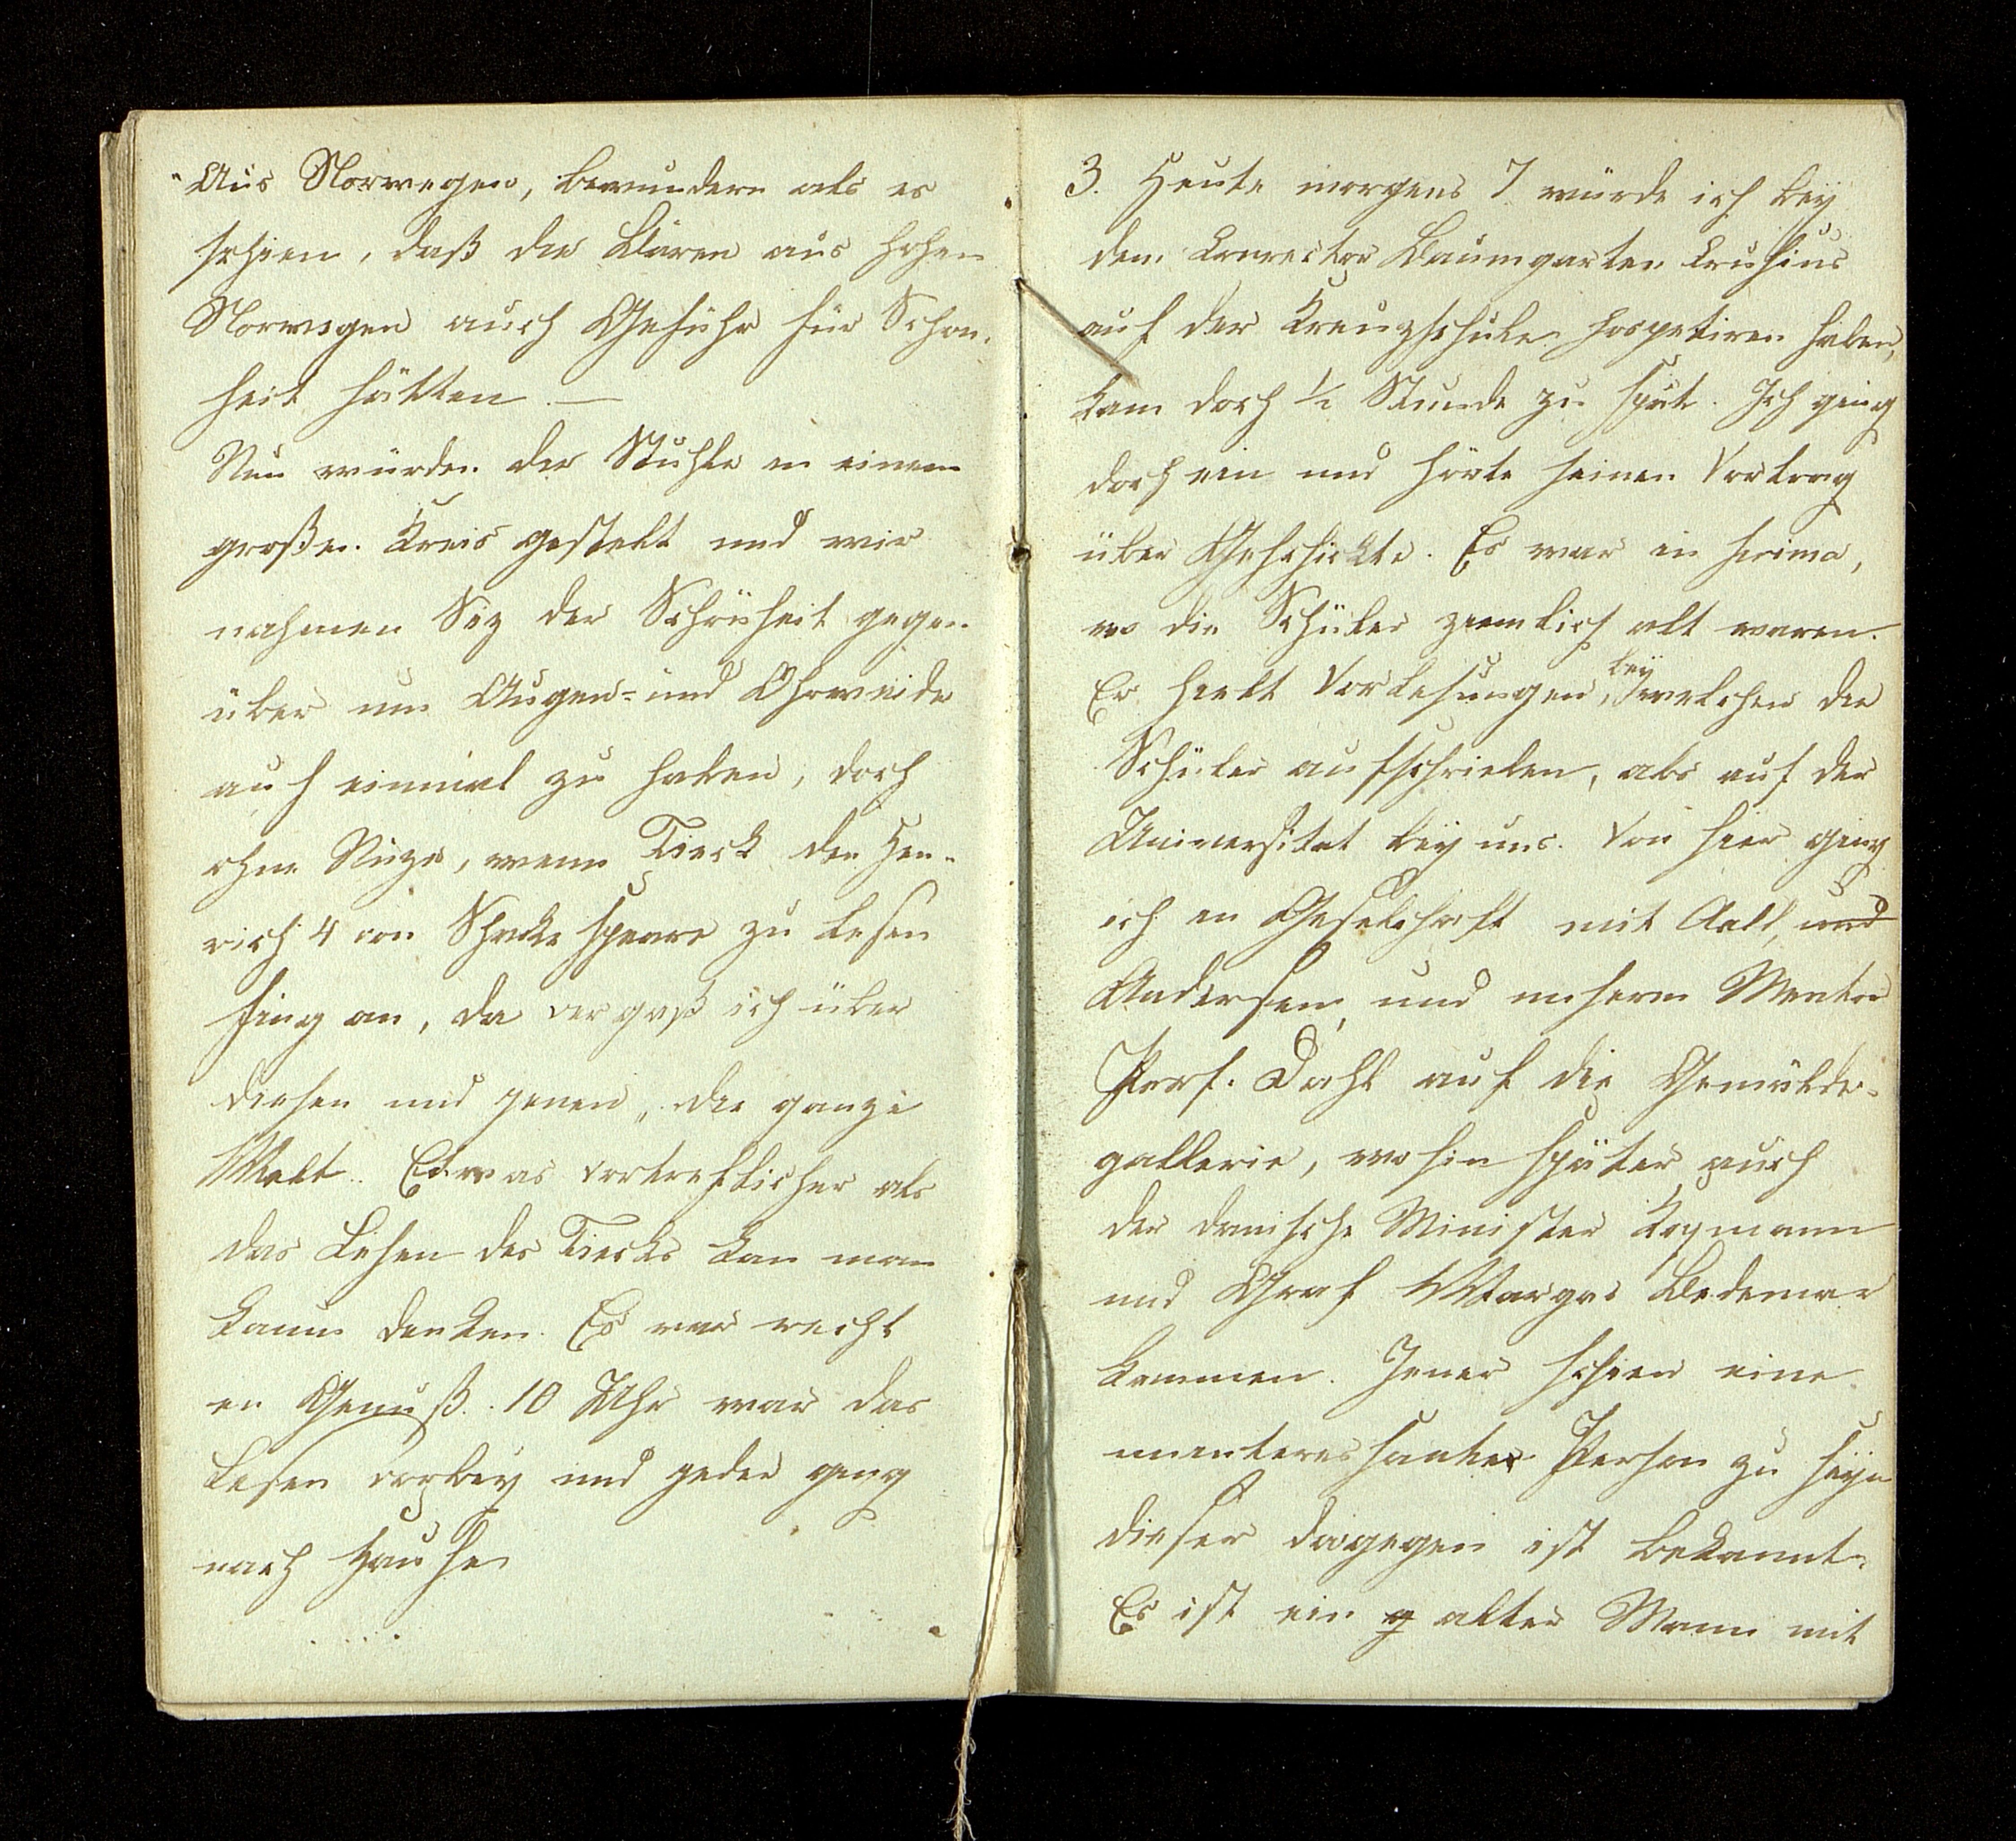 Aus Norwegen, bewundern als es
schien, daß die Bären aus hohen
Norwegen auch Geführ für Schon-
heit hätten. —
Nun würden der Stühle in einem
großen Kreis gestelt und wir
nahmen Siz der Schönheit gegen
über um Augen- und Ohrweide
auf einmal zu haben, doch
ohne Nuze, wenn Tieck den Hen-
rich 4 von Shakespeare zu lesen
fing an, da vergaß ich über
diesen und genen, die ganze
Welt. Etwas vortreflicher als
das Lesen des Tiecks kan man
kaum denken. Es war recht
en Genuß. 10 Uhr war das
Lesen vorbey und geder ging
nach Hause
3. Heute morgens 7 würde ich bey
dem Conrector Baumgarten Crusius
auf der Kreuzschule hospetiren haben,
kam doch ½ Stunde zu spät. Ich ging
doch ein und hörte seinen Vortrag
über Geschickte. Es war in prima,
wo die Schüler ziemlich alt waren.
Er hielt Vorlesungen, bey welchen die
Schüler aufschrieben, als auf der
Universitet bey uns. Von hier ging
ich en Geselschaft mit Aall, und
Andersen, und unserm Mentor
Prof. Dahl auf die Gemälde-
gallerie, wohin später auch
der danische Minister Koymann
und Graf Vargas Bedemar
kommen. Jener schien eine
uninteressante Person zu seyn
dieser dagegen ist bekannt.
Es ist ein g alter Mann mit